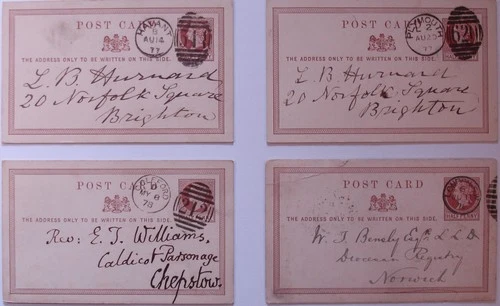 POST CARD
HAVANT
B
AU 14
77
THE ADDRESS ONLY TO BE WRITTEN ON THIS SIDE.
L. B. Hurnard
20 Norfolk Square
Brighton
POST CARD
PLYMOUTH
AU 23
77
62
THE ADDRESS ONLY TO BE WRITTEN ON THIS SIDE.
L. B. Hurnard
20 Norfolk Square
Brighton
POST CARD
COLEFORD
MY 8
78
242
THE ADDRESS ONLY TO BE WRITTEN ON THIS SIDE.
Rev: E. T. Williams,
Caldicot Parsonage
Chepstow.
POST CARD
HALFPENNY
THE ADDRESS ONLY TO BE WRITTEN ON THIS SIDE.
W. T. Bensly Esqre L.L.D.
Diocesan Registry
Norwich